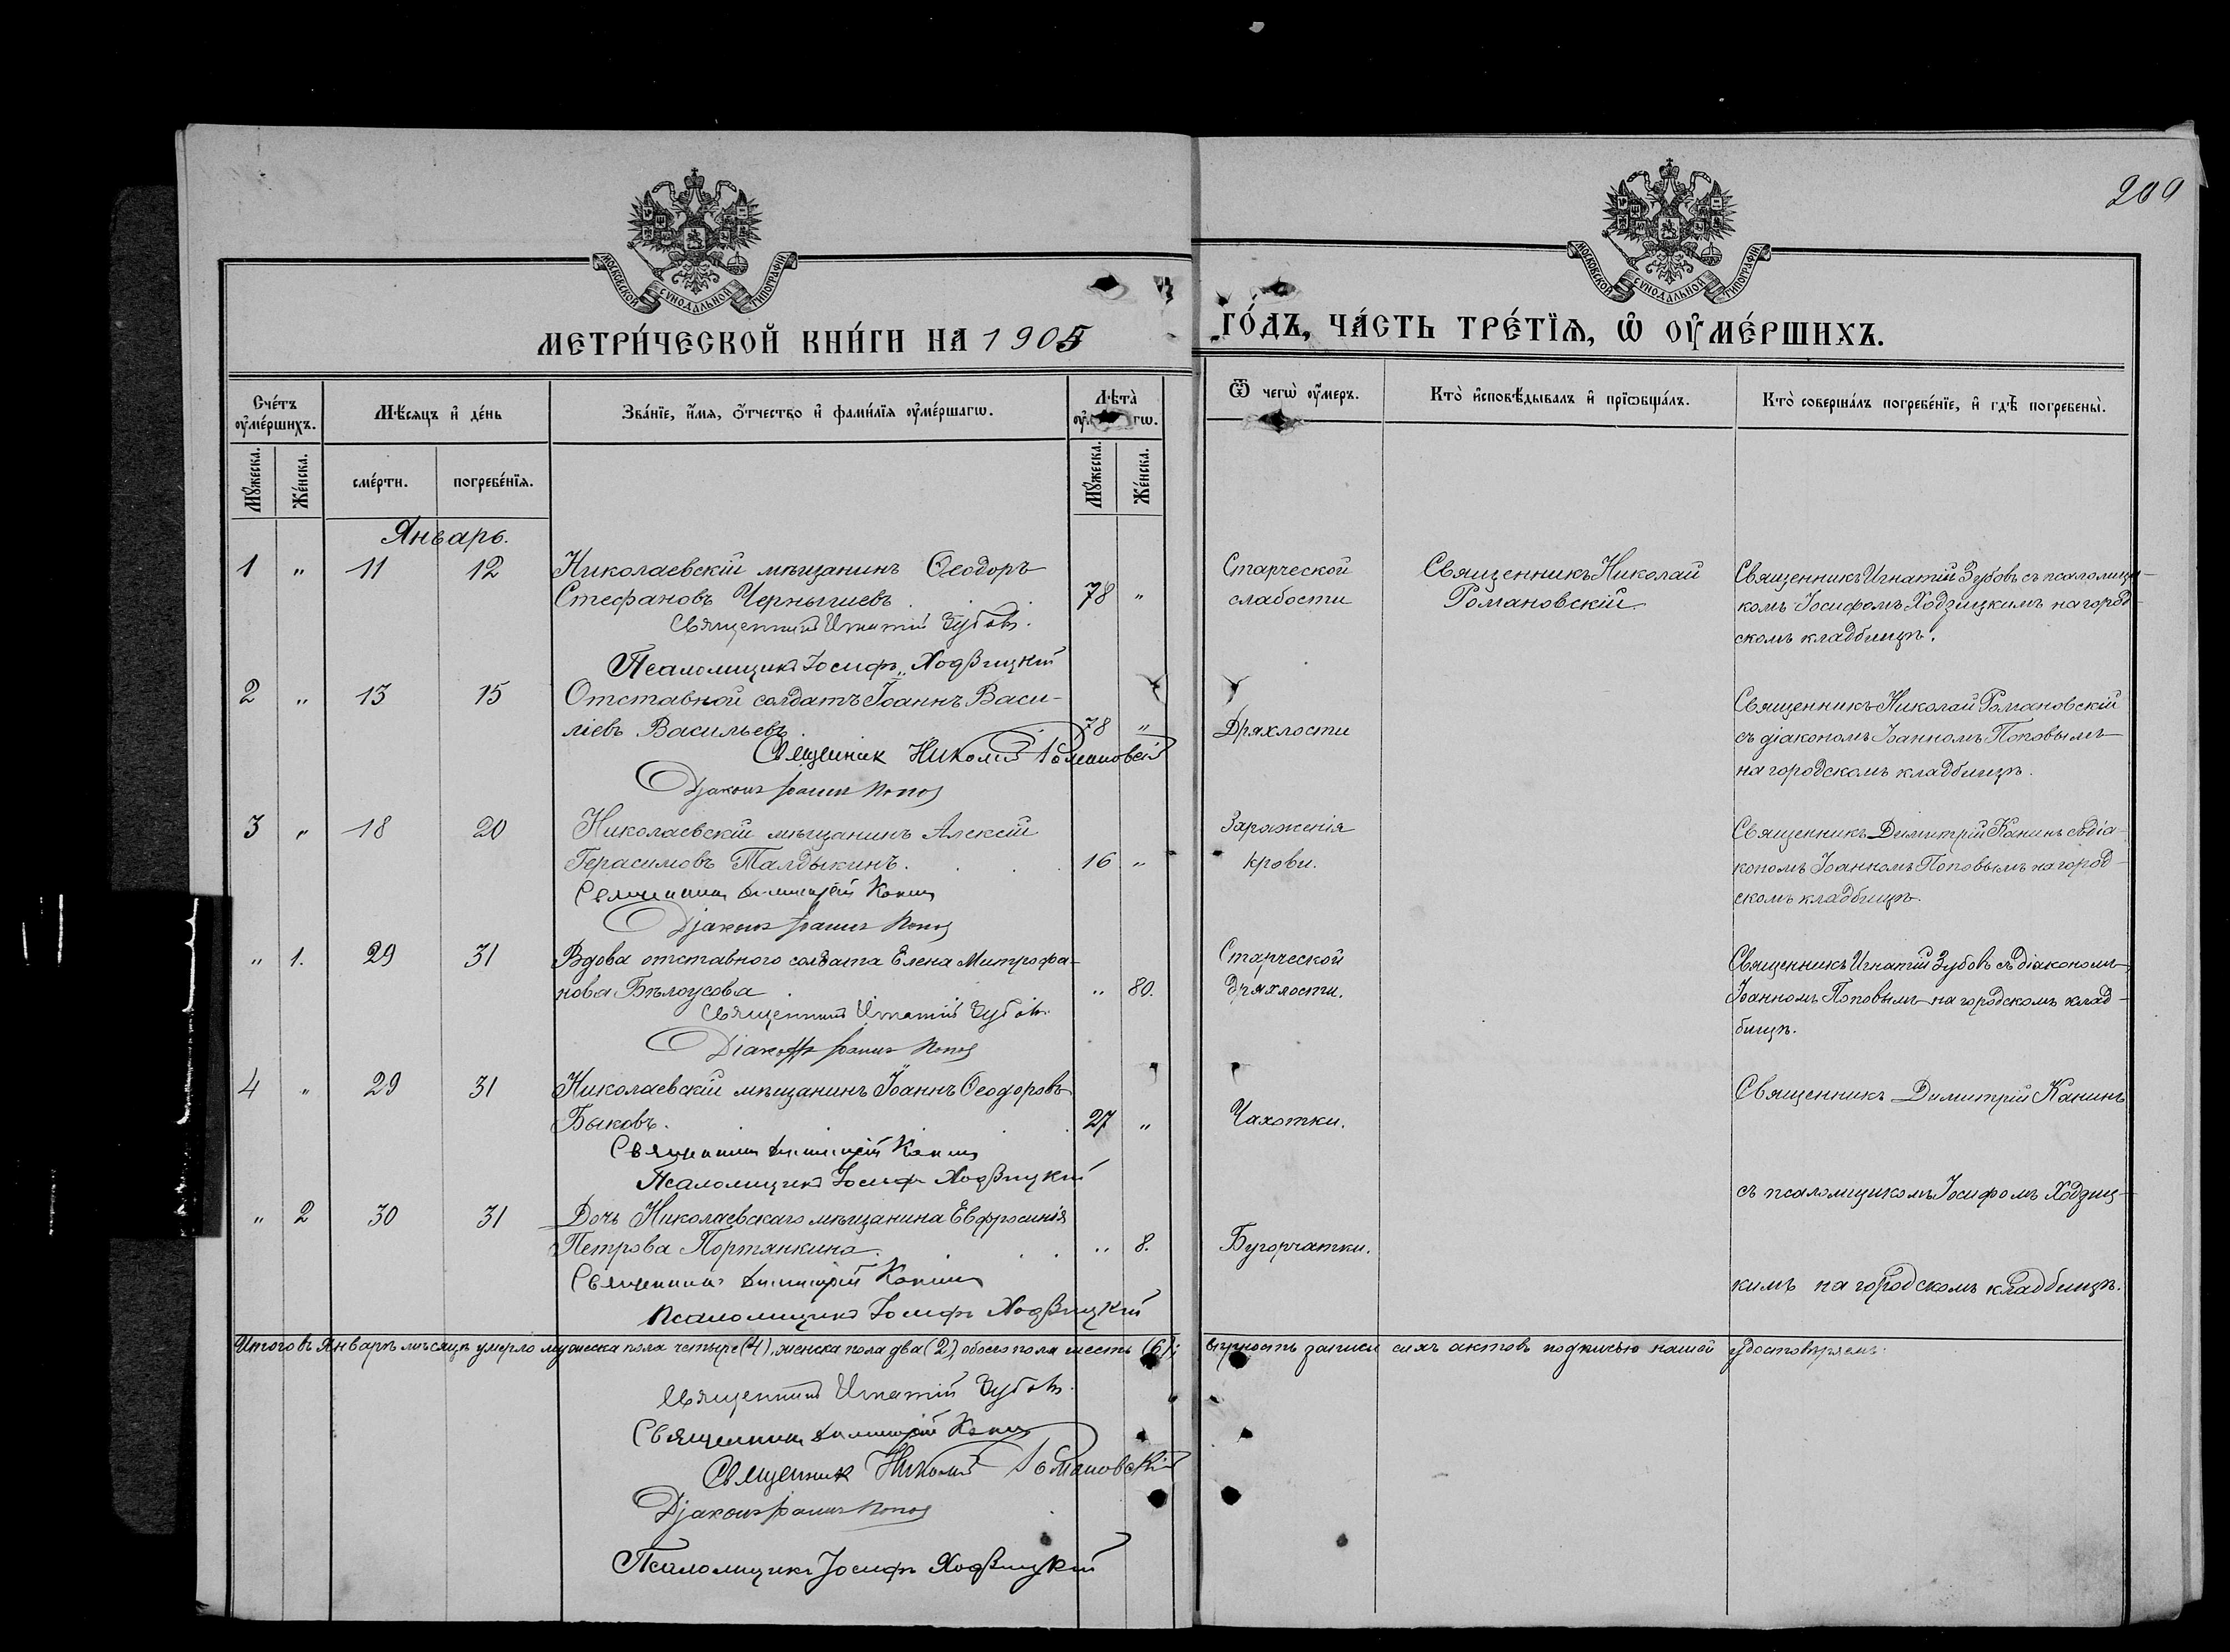 209
МОСКОВСКОЙ СѴНОДАЛЬНОЙ ТИПОГРАФІИ
МОСКОВСКОЙ СѴНОДАЛЬНОЙ ТИПОГРАФІИ
МЕТРИ́ЧЕСКОЙ КНИ́ГИ НА 1905
ГО́ДЪ, ЧА́СТЬ ТРЕ́ТЇѦ, Ѡ ОУМЕ́РШИХЪ.
Сче́тъ оуме́ршихъ.
Мѣ́сяцъ и де́нь
Зва́нїе, и́мя, о́тчество и фами́лїя оуме́ршагѡ.
Лѣта̀
Ѿ чегѡ̀ оу́меръ.
Кто̀ исповѣ́дывалъ и прїѡбща́лъ.
Кто̀ соверша́лъ погребе́нїе, и гдѣ̀ погребены̀.
Му́жеска. Же́нска. сме́рти. погребе́нїя. Му́жеска. Же́нска.
Январь.
1 " 11 12 Николаевскій мѣщанинъ Ѳеодоръ
Стефановъ Чернышевъ 78 "
Священникъ Игнатій Зубовъ.
Псаломщикъ Іосифъ Ходзицкій
Старческой
слабости
Священникъ Николай
Романовскій
Священникъ Игнатій Зубовъ съ псаломщи-
комъ Іосифомъ Ходзицкимъ на город-
скомъ кладбищѣ.
2 " 13 15 Отставной солдатъ Іоаннъ Васи-
ліевъ Васильевъ 78 "
Священник Николай Романовскій
Діаконъ Іоаннъ Попов
Дряхлости
Священникъ Николай Романовскій
съ діакономъ Іоанномъ Поповымъ
на городскомъ кладбищѣ.
3 " 18 20 Николаевскій мѣщанинъ Алексій
Герасимовъ Талдыкинъ. 16 "
Священникъ Димитрій Канинъ
Діаконъ Іоаннъ Попов
Зараженія
крови.
Священникъ Димитрій Канинъ съ діа-
кономъ Іоанномъ Поповымъ на город-
скомъ кладбищѣ.
" 1. 29 31 Вдова отставного солдата Елена Митрофа-
нова Бѣлоусова " 80.
Священникъ Игнатій Зубовъ
Діаконъ Іоаннъ Попов
Старческой
дряхлости.
Священникъ Игнатій Зубовъ съ діакономъ
Іоанномъ Поповымъ на городскомъ клад-
бищѣ.
4 " 29 31 Николаевскій мѣщанинъ Іоаннъ Ѳеодоровъ
Быковъ. 27 "
Священникъ Димитрій Канинъ
Псаломщикъ Іосифъ Ходзицкій
Чахотки.
Священникъ Димитрій Канинъ
съ псаломщикомъ Іосифомъ Ходзиц-
" 2 30 31 Дочь Николаевскаго мѣщанина Евфросинія
Петрова Портянкина. " 8.
Священникъ Димитрій Канинъ
Псаломщикъ Іосифъ Ходзицкій
Бугорчатки.
кимъ на городскомъ кладбищѣ.
Итого въ Январѣ мѣсяцѣ умерло мужеска пола четыре (4), женска пола два (2), обоего пола шесть (6); вѣрность записи сихъ актовъ подписью нашей удостовѣряемъ.
Священникъ Игнатій Зубовъ.
Священникъ Димитрій Канинъ
Священник Николай Романовскій
Діаконъ Іоаннъ Попов
Псаломщикъ Іосифъ Ходзицкій